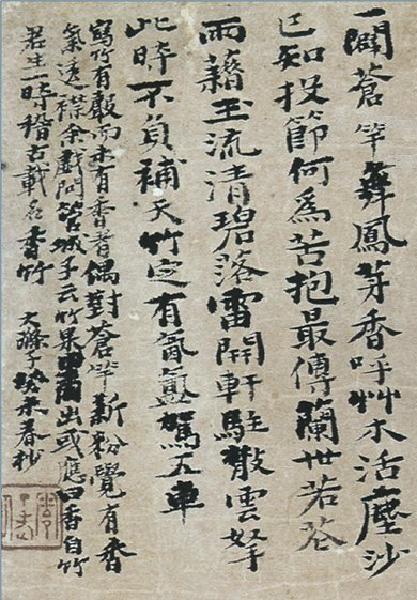 一闢蒼竿舞鳳芽香呼艸木活塵沙
已知投節何爲苦抱最傳蘭世若
雨藉玉流清碧落雷開軒駐散雲
此時不負補天竹定有氤氳駕五車
寫竹有聲而未有香者偶對蒼竿新粉覺有香
氣透襟余戲問管城子云竹果出或應曰香自竹
君生一時稽古載名香竹 大滌子癸未春杪